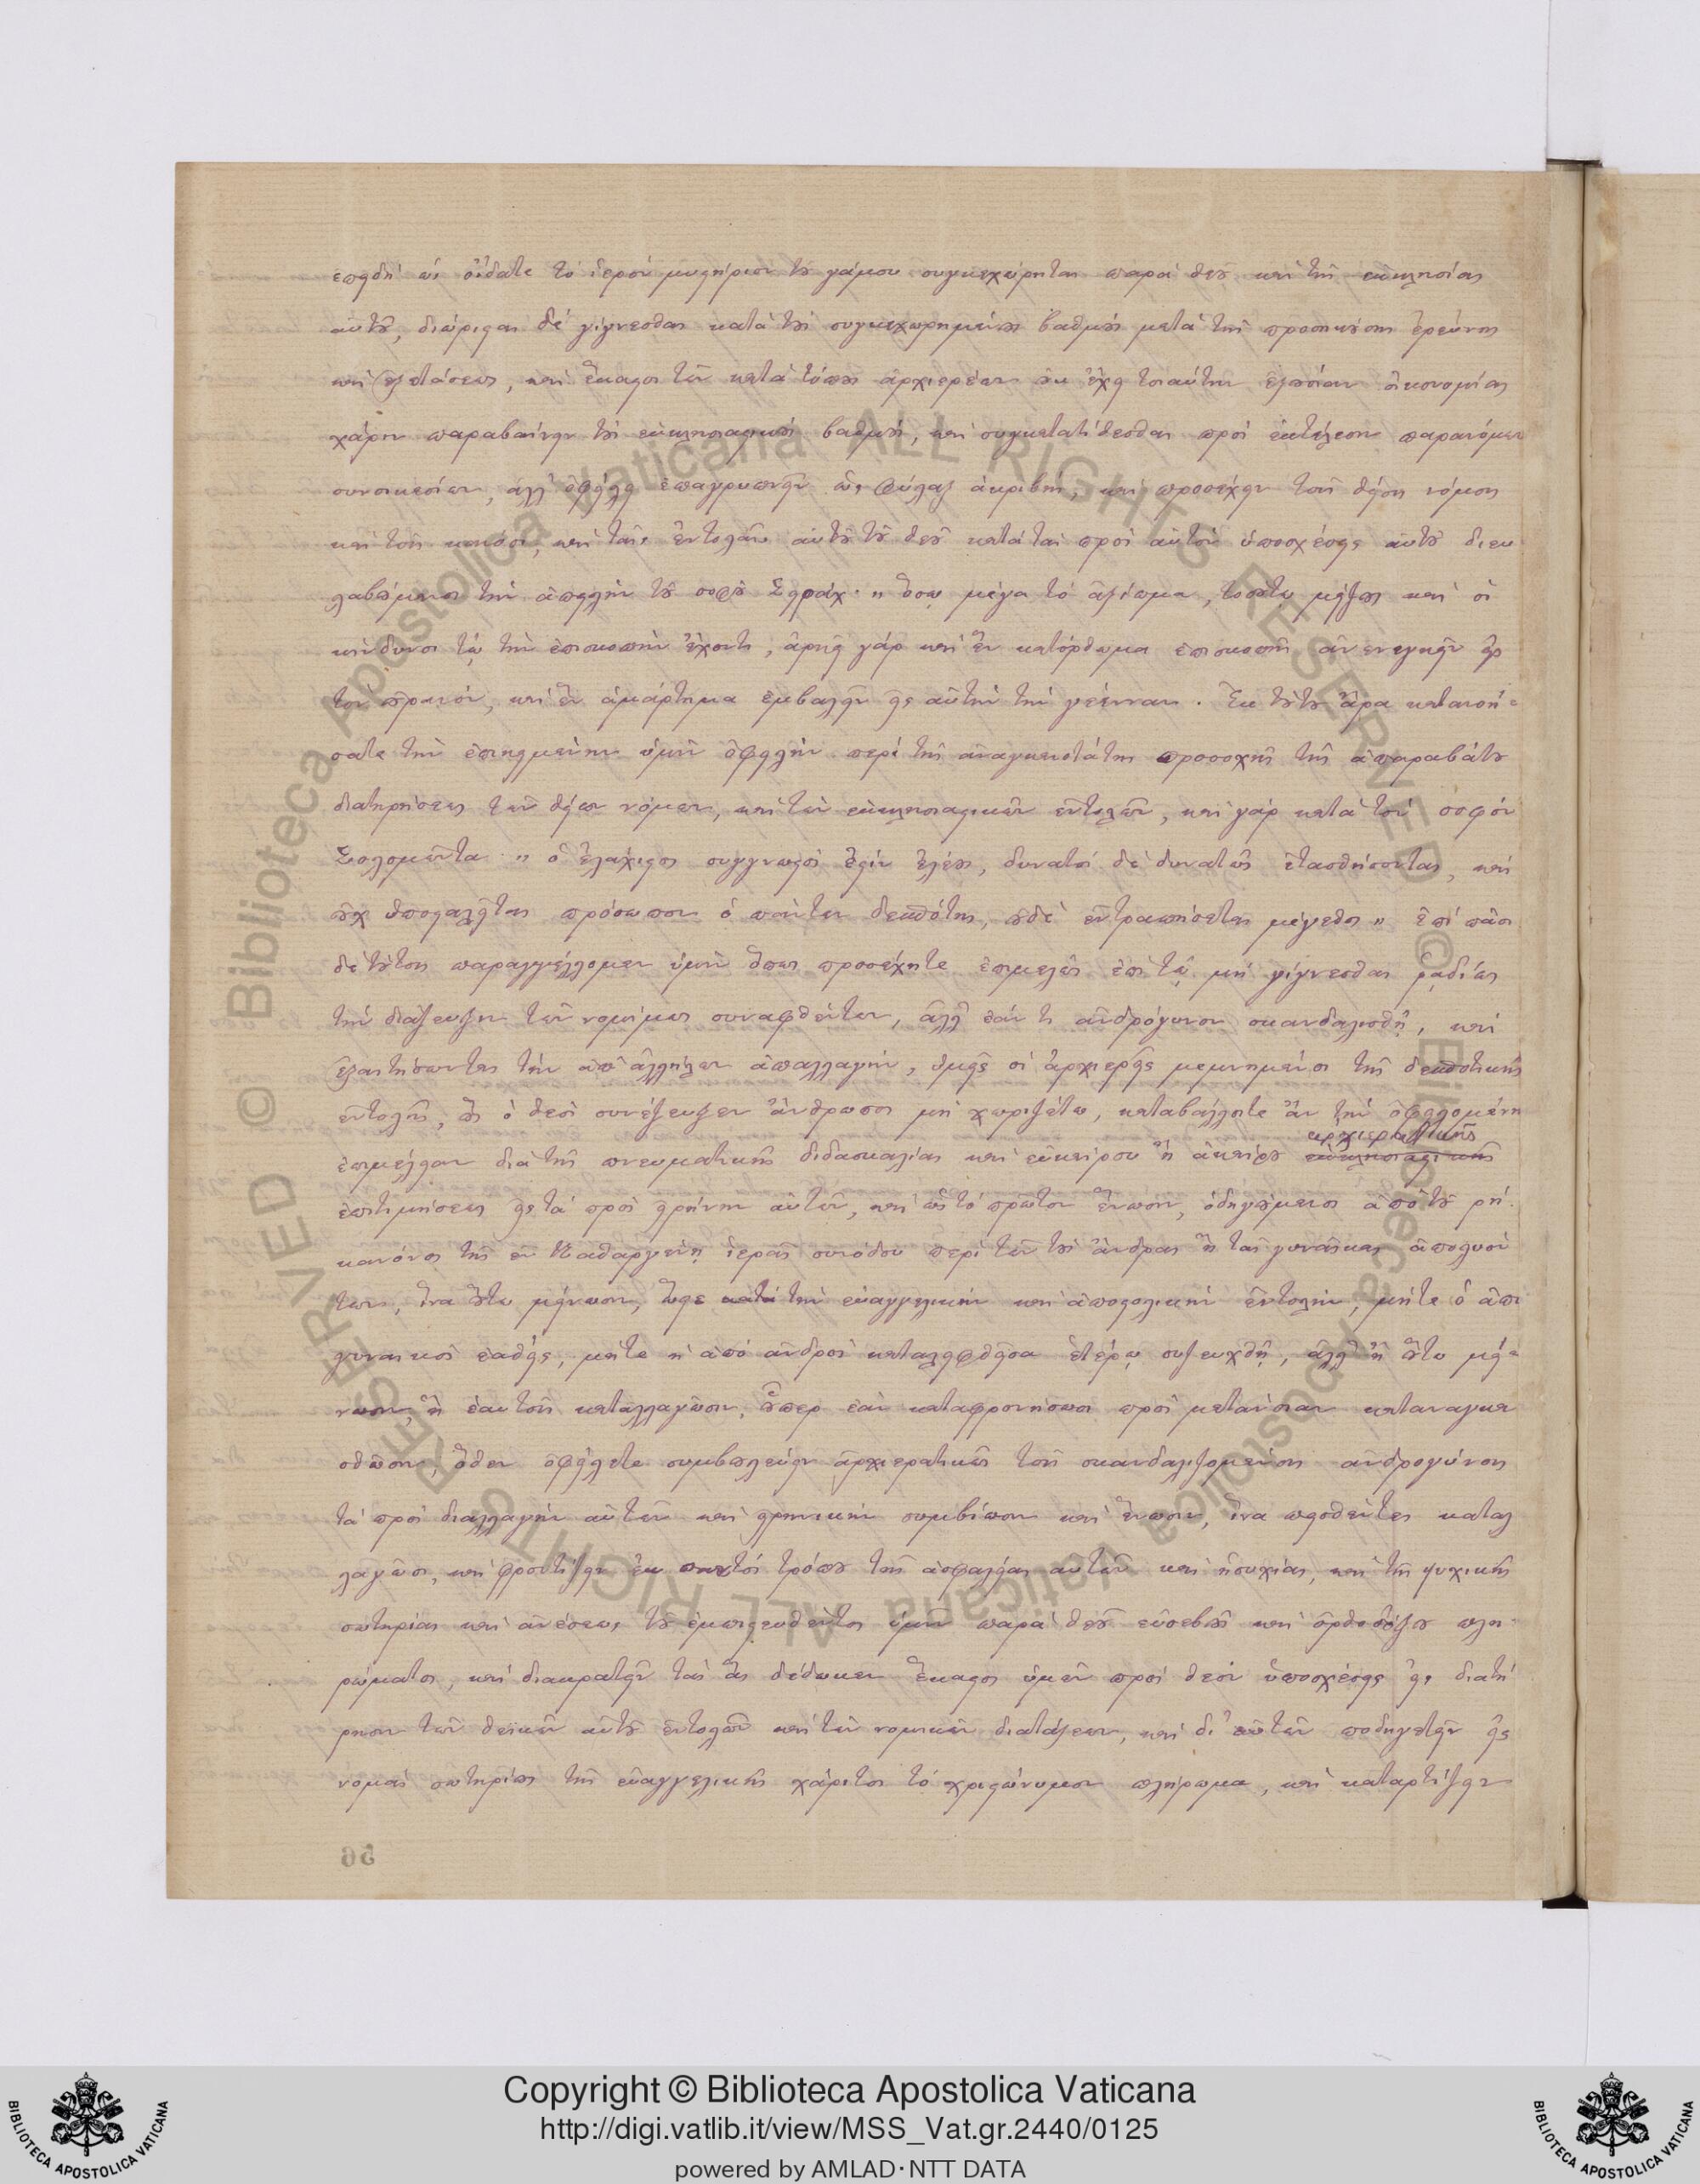 ἐπειδὴ ὡς οἴδατε τὸ ἱερὸν μυστήριον τοῦ γάμου συγκεχώρηται παρὰ θεοῦ καὶ τῆς ἐκκλησίας
αὐτοῦ, διώρισται δὲ γίγνεσθαι κατὰ τοὺς συγκεχωρημένους βαθμοὺς μετὰ τῆς προσηκούσης ἐρεύνης
καὶ ἐξετάσεως, καὶ ἕκαστος τῶν κατὰ τόπους ἀρχιερέων οὐκ ἔχει τοιαύτην ἐξουσίαν οἰκονομίας
χάριν παραβαίνειν τοὺς ἐκκλησιαστικοὺς βαθμοὺς, καὶ συγκατατίθεσθαι πρὸς ἐκτέλεσιν παρανόμων
συνοικεσίων, ἀλλ' ὀφείλει ἐπαγρυπνεῖν ὡς φύλαξ ἀκριβὴς, καὶ προσέχειν τοῖς θείοις νόμοις
καὶ τοῖς κανόσι, καὶ ταῖς ἐντολαῖς αὐτοῦ τοῦ θεοῦ κατὰ τὰς πρὸς αὐτὸν ὑποσχέσεις αὐτοῦ διευ
λαβούμενος τὴν ἀπειλὴν τοῦ σοφοῦ Σειράχ· " ὅσῳ μέγα τὸ ἀξίωμα, τοσούτῳ μείζους καὶ οἱ
κίνδυνοι τῷ τὴν ἐπισκοπὴν ἔχοντι, ἀρκεῖ γὰρ καὶ ἓν κατόρθωμα ἐπισκοπῆς ἀνενεγκεῖν εἰς
τὸν οὐρανόν, καὶ ἓν ἁμάρτημα ἐμβαλεῖν εἰς αὐτὴν τὴν γέενναν. Ἐκ τούτου ἄρα κατανοή-
σατε τὴν ἐπικειμένην ὑμῖν ὀφειλὴν περὶ τῆς ἀναγκαιοτάτης προσοχῆς τῆς ἀπαραβάτου
διατηρήσεως τῶν θείων νόμων, καὶ τῶν ἐκκλησιαστικῶν ἐντολῶν, καὶ γὰρ κατὰ τὸν σοφὸν
Σολομῶντα " ὁ ἐλάχιστος συγγνωστός ἐστιν ἐλέους, δυνατοὶ δὲ δυνατῶς ἐτασθήσονται, καὶ
οὐχ ὑποστελεῖται πρόσωπον ὁ πάντων δεσπότης, οὐδὲ ἐντραπήσεται μέγεθος " ἐπὶ πᾶσι
δὲ τούτοις παραγγέλλομεν ὑμῖν ὅπως προσέχητε ἐπιμελῶς ἐπὶ τῷ μὴ γίγνεσθαι ῥᾳδίως
τὴν διάζευξιν τῶν νομίμως συναφθέντων, ἀλλ' ἐάν τι ἀνδρόγυνον σκανδαλισθῇ, καὶ
ἐξαιτήσωνται τὴν ἀπ' ἀλλήλων ἀπαλλαγὴν, ὑμεῖς οἱ ἀρχιερεῖς μεμνημένοι τῆς δεσποτικῆς
ἐντολῆς, οὓς ὁ θεὸς συνέζευξεν ἄνθρωπος μὴ χωριζέτω, καταβάλλοιτε ἂν τὴν ὀφειλομένην
ἐπιμέλειαν διὰ τῆς πνευματικῆς διδασκαλίας καὶ εὐκαίρου ἢ ἀκαίρου ἐκκλησιαστικῆς ἀρχιερατικῆς
ἐπιτιμήσεως εἰς τὰ πρὸς εἰρήνην αὐτῶν, καὶ εἰς τὸ πρῶτον ἕνωσιν, ὁδηγούμενοι ἀπὸ τοῦ ρή.
κανόνος τῆς ἐν Καθαργένῃ ἱερᾶς συνόδου περὶ τῶν τοὺς ἄνδρας ἢ τὰς γυναῖκας ἀπολυόν
των, ἵνα οὕτω μείνωσιν, ὥστε κατὰ τὴν εὐαγγελικὴν καὶ ἀποστολικὴν ἐντολὴν, μήτε ὁ ἀπὸ
γυναικὸς ἐαθεὶς, μήτε ἡ ἀπὸ ἀνδρὸς καταλειφθεῖσα ἑτέρῳ συζευχθῇ, ἀλλ' ἢ οὕτω μεί-
νωσιν, ἢ ἑαυτοῖς καταλλαγῶσιν, οὗπερ ἐὰν καταφρονήσωσι πρὸς μετάνοιαν καταναγκα
σθῶσιν, ὅθεν ὀφείλετε συμβουλεύειν ἀρχιερατικῶς τοῖς σκανδαλιζομένοις ἀνδρογύνοις
τὰ πρὸς διαλλαγὴν αὐτῶν καὶ εἰρηνικὴν συμβίωσιν καὶ ἕνωσιν, ἵνα πεισθέντες καταλ
λαγῶσι, καὶ φροντίζειν ἐκ παντὸς τρόπου τῆς ἀσφαλείας αὐτῶν καὶ ἡσυχίας, καὶ τῆς ψυχικῆς
σωτηρίας καὶ ἀνέσεως τοῦ ἐμπιστευθέντος ὑμῖν παρὰ θεοῦ εὐσεβοῦς καὶ ὀρθοδόξου πλη-
ρώματος, καὶ διακρατεῖν τὰς ἃς δέδωκεν ἕκαστος ὑμῶν πρὸς θεὸν ὑποσχέσεις εἰς διατή
ρησιν τῶν θεϊκῶν αὐτοῦ ἐντολῶν καὶ τῶν νομικῶν διατάξεων, καὶ δι' αὐτῶν ποδηγετεῖν εἰς
νομὰς σωτηρίους τῆς εὐαγγελικῆς χάριτος τὸ χριστώνυμον πλήρωμα, καὶ καταρτίζειν
Copyright © Biblioteca Apostolica Vaticana
http://digi.vatlib.it/view/MSS_Vat.gr.2440/0125
powered by AMLAD·NTT DATA
BIBLIOTECA APOSTOLICA VATICANA
BIBLIOTECA APOSTOLICA VATICANA
Biblioteca Apostolica Vaticana ALL RIGHTS RESERVED © Biblioteca Apostolica Vaticana ALL RIGHTS RESERVED ©